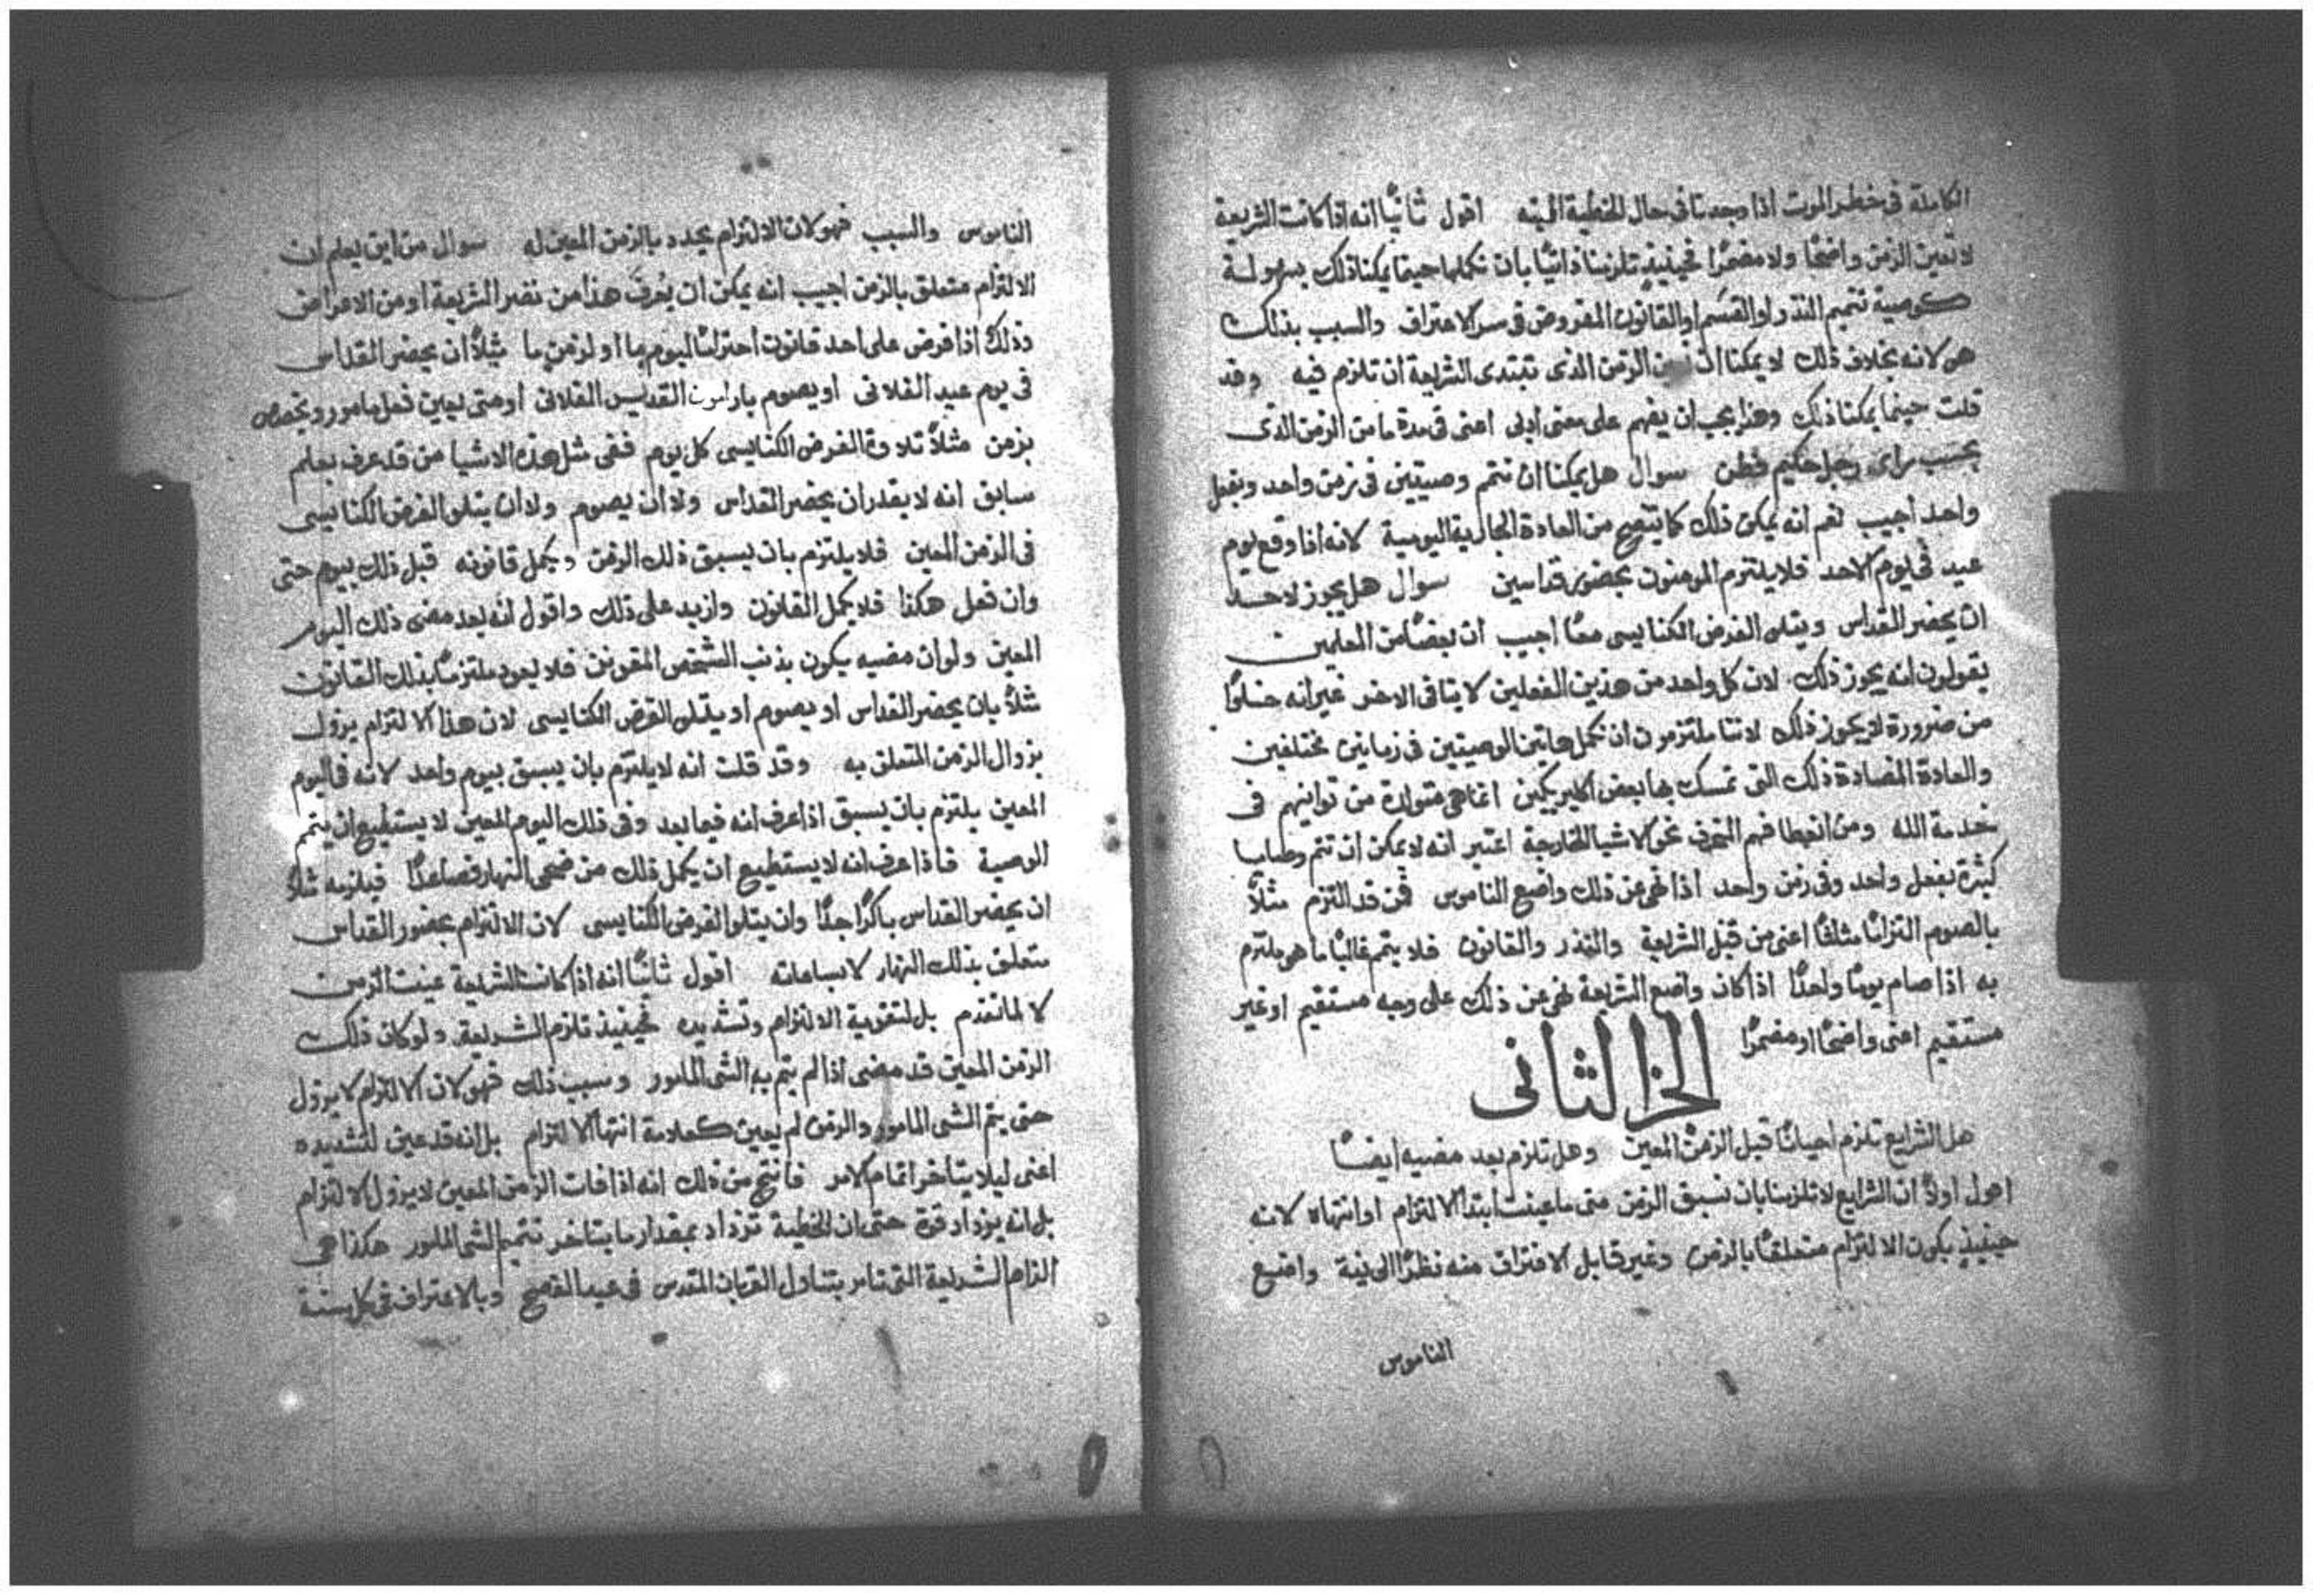 الكاملة فى خطر الموت اذا وجدنا فى حال الخطية المميته اقول ثانيًا انه اذا كانت الشريعة
لا تعين الزمن واضحًا ولا مضمرًا فحينيذٍ تلزمنا ذاتيًا بان نكملها حينما يمكنا ذلك بسهولة
كوصية تتميم النذر او القسَم او القانون المفروض فى سر الاعتراف والسبب بذلك
هو لانه بخلاف ذلك لا يمكنا ان الزمن الذى تبتدى الشريعة ان تلزم فيه وقد
قلت حينما يمكنا ذلك وهذا يجب ان يفهم على معنى ادبى اعنى فى مدة ما من الزمن الذى
بحسب راى رجل حكيم فطن سوال هل يمكنا ان نتم وصيتين فى زمن واحد وبفعل
واحد اجيب نعم انه يمكن ذلك كما يتضح من العادة الجارية اليومية لانه اذا وقع يوم
عيد فى يوم الاحد فلا يلتزم المومنون بحضور قداسين سوال هل يجوز لاحد
ان يحضر القداس ويتلى الفرض الكنايسى معًا اجيب ان بعضًا من المعلمين
يقولون انه يجوز ذلك لان كل واحد من هذين الفعلين لا ينافى الاخر غير انه خلوًا
من ضرورة لا يجوز ذلك لاننا ملتزمون ان نكمل هاتين الوصيتين فى زمانين مختلفين
والعادة المضادة ذلك التى تمسك بها بعض اكليريكيين انما هى متولدة من توانيهم فى
خدمة الله ومن انعطافهم المنحرف نحو الاشيا الخارجة اعتبر انه لا يمكن ان تتم وصايا
كثيرة بفعل واحد وفى زمن واحد اذا نهى عن ذلك واضع الناموس فمن قد التزم مثلًا
بالصوم التزامًا مثلثًا اعنى من قبل الشريعة والنذر والقانون فلا يتم غالبًا ما هو ملتزم
به اذا صام يومًا واحدًا اذا كان واضع الشريعة نهى عن ذلك على وجه مستقيم او غير
مستقيم اعنى واضحًا او مضمرًا
الجز الثانى
هل الشرايع تلزم احيانًا قبل الزمن المعين وهل تلزم بعد مضيه ايضًا
اقول اولًا ان الشرايع لا تلزمنا بان نسبق الزمن متى ما عينت ابتدا الالتزام او انتهاه لانه
حينيذٍ يكون الالتزام متعلقًا بالزمن وغير قابل الافتراق منه نظرًا الى نية واضع
الناموس
الناموس والسبب فهو لان الالتزام يحدد بالزمن المعين له سوال من اين يعلم ان
الالتزام متعلق بالزمن اجيب انه يمكن ان يُعرف هذا من نفس الشريعة او من الاعراض
وذلك اذا فرض على احد قانون احترامًا ليوم ما او لزمن ما مثلًا ان يحضر القداس
فى يوم عيد الفلانى او يصوم بارامون القديس الفلانى او متى يعين فعل مامور ويخصص
بزمن مثلًا تلاوة الفرض الكنايسى كل يوم ففى مثل هذه الاشيا من قد عرف بعلم
سابق انه لا يقدر ان يحضر القداس ولا ان يصوم ولا ان يتلو الفرض الكنايسى
فى الزمن المعين فلا يلتزم بان يسبق ذلك الزمن ويكمل قانونه قبل ذلك بيوم حتى
وان فعل هكذا فلا يكمل القانون وازيد على ذلك واقول انه بعد مضى ذلك اليوم
المعين ولو ان مضيه يكون بذنب الشخص المقونن فلا يعود ملتزمًا بذلك القانون
مثلًا بان يحضر القداس او يصوم او يتلى الفرض الكنايسى لان هذا الالتزام يزول
بزوال الزمن المتعلق به وقد قلت انه لا يلتزم بان يسبق بيوم واحد لانه فى اليوم
المعين يلتزم بان يسبق اذا عرف انه فيما بعد وفى ذلك اليوم المعين لا يستطيع ان يتمم
الوصية فاذا عرف انه لا يستطيع ان يكمل ذلك من ضحى النهار فصاعدًا فيلزمه مثلًا
ان يحضر القداس باكرًا جدًا وان يتلو الفرض الكنايسى لان الالتزام بحضور القداس
متعلق بذلك النهار لا بساعاته اقول ثانيًا انه اذا كانت الشريعة عينت الزمن
لا لما تقدم بل لتقوية الالتزام وتشديده فحينيذ تلزم الشريعة ولو كان ذلك
الزمن المعين قد مضى اذا لم يتم به الشى المامور وسبب ذلك فهو لان الالتزام لا يزول
حتى يتم الشى المامور والزمن لم يعين كعلامة انتها الالتزام بل انه قد عين لتشديده
اعنى ليلا يتاخر اتمام الامر فانتج من ذلك انه اذا فات الزمن المعين لا يزول الالتزام
بل انه يزداد قوة حتى ان الخطية تزداد بمقدار ما يتاخر تتميم الشى المامور هكذا هى
الزام الشريعة التى تامر بتناول القربان المقدس فى عيد الفصح وبالاعتراف فى كل سنة